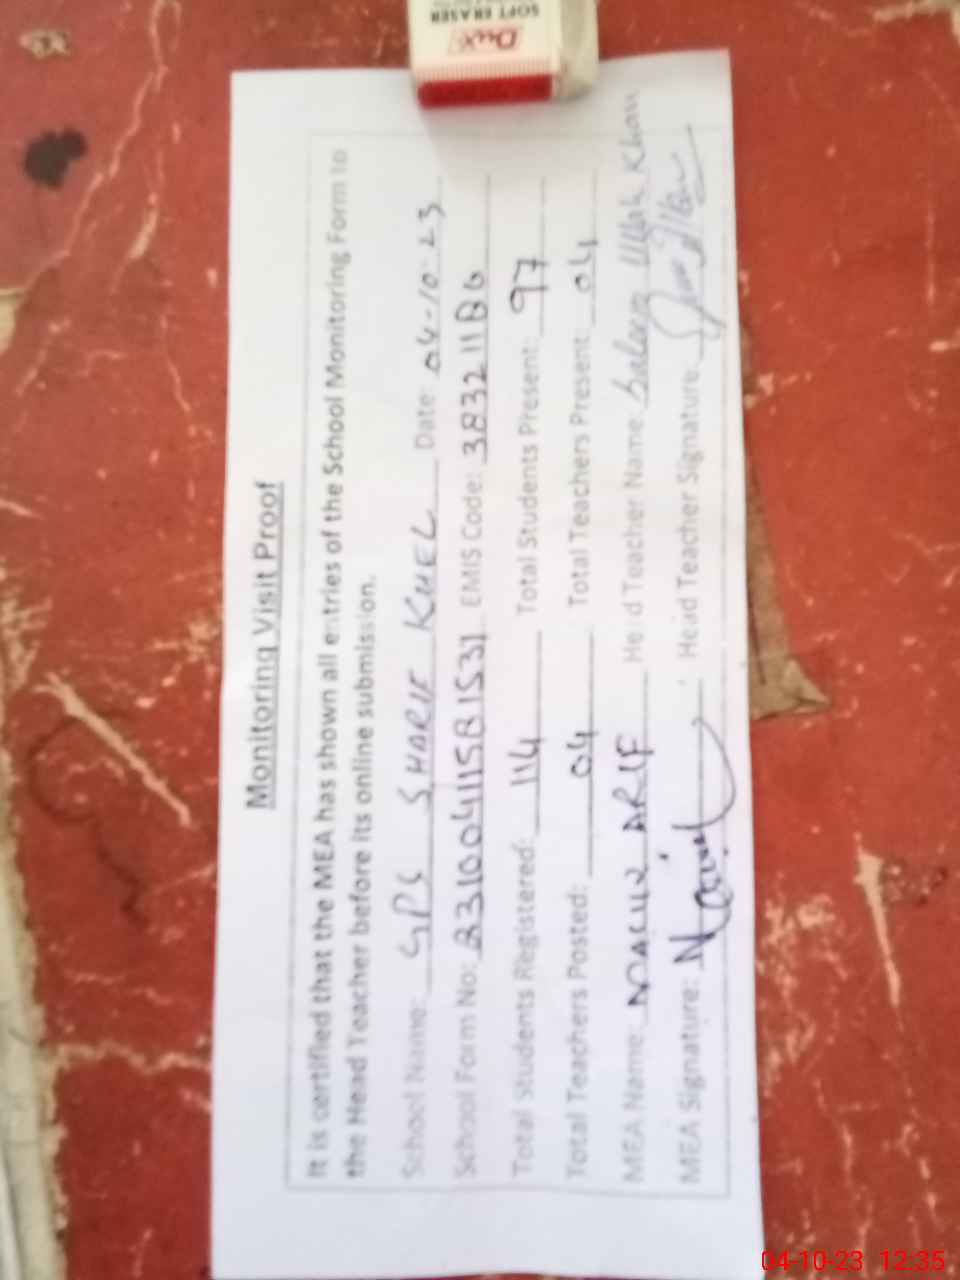 SOFT ERASER
Dux
Monitoring Visit Proof
It is certified that the MEA has shown all entries of the School Monitoring Form to
the Head Teacher before its online submission.
School Name: GPS SHARIF KHEL Date: 04-10-23
School Form No: EMIS Code:
Total Students Registered: 114 Total Students Present: 97
Total Teachers Posted: 04 Total Teachers Present: 04
MEA Name: ARIF Head Teacher Name: Saleem Ullah Khan
MEA Signature: Head Teacher Signature:
04-10-23 12:35